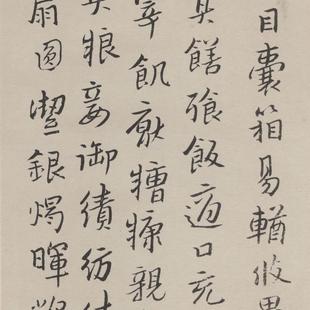 目囊箱易輶攸畏
具膳飱飯適口充
宰飢猒糟糠親
異粮妾御績紡侍
扇圓潔銀燭暉